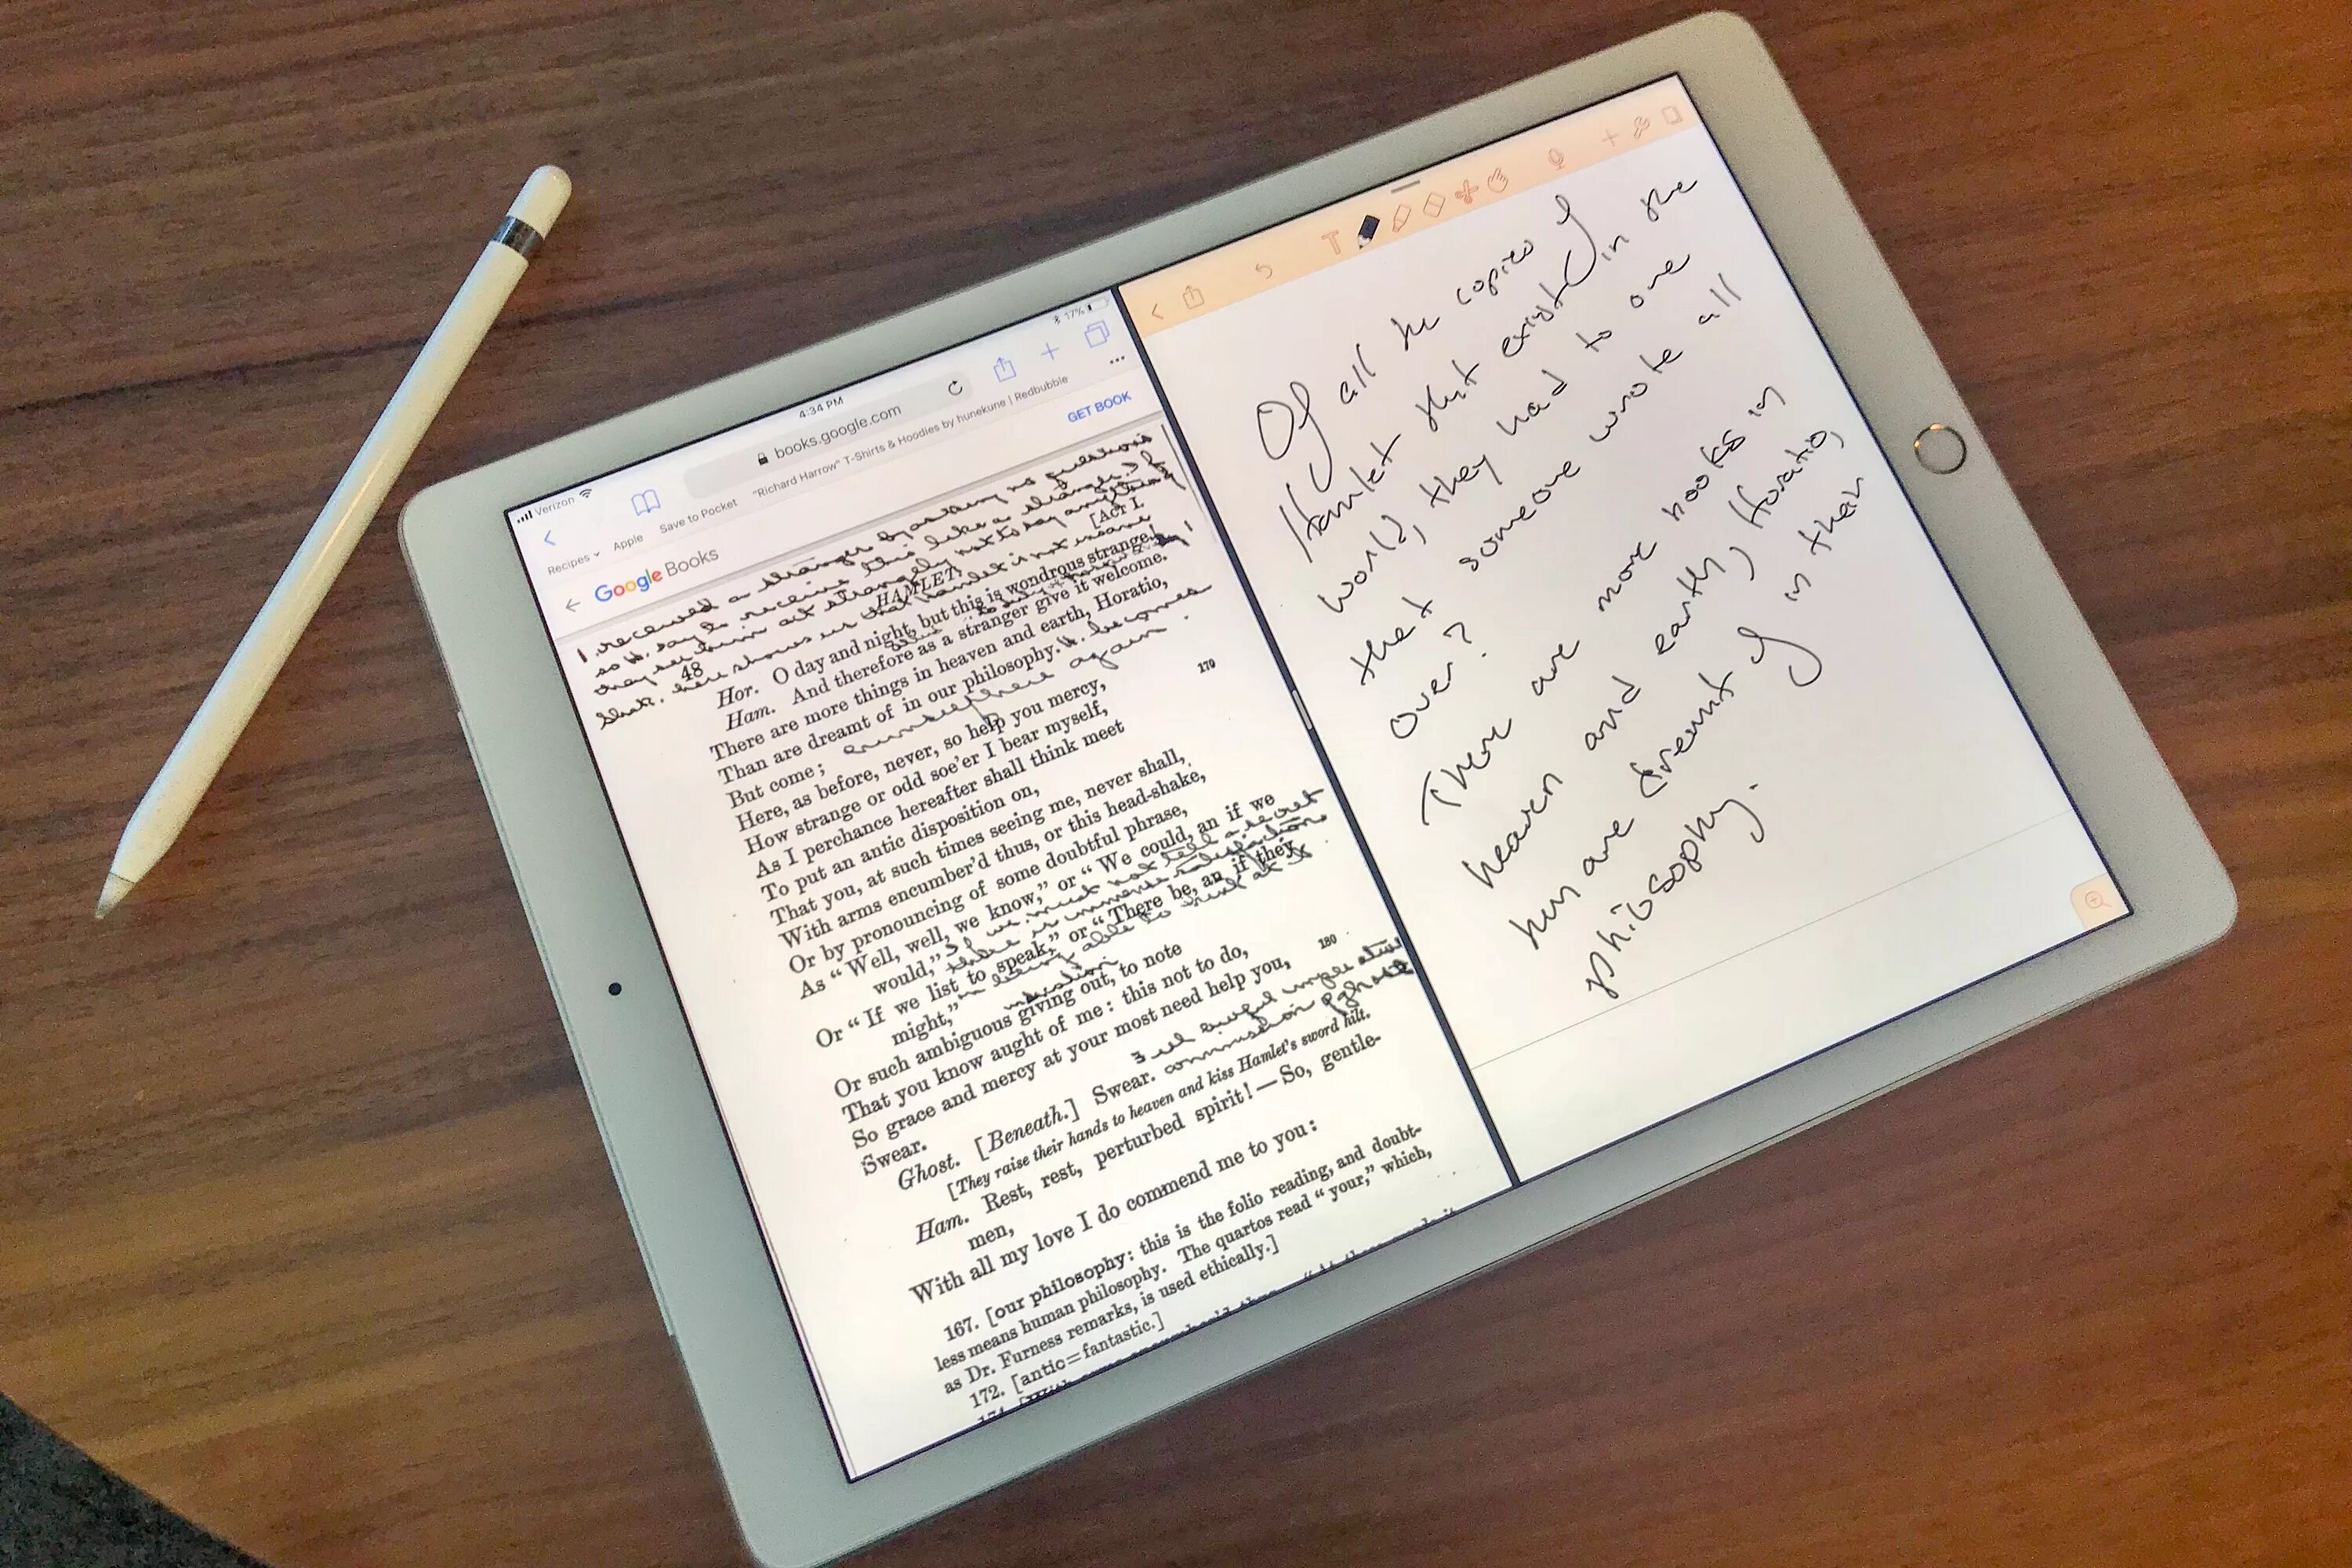 Verizon 4:34 PM 17%
books.google.com
Recipes Apple Save to Pocket "Richard Harrow" T-Shirts & Hoodies by hunekune | Redbubble ...
Google Books GET BOOK
I received a stranger by asking no questions
so H. say to receive this like a stranger.
they see him act strangely not to say anything
[ACT I.
48 HAMLET,
here shows us that Hamlet is not insane
Hor. O day and night, but this is wondrous strange.
Ham. And therefore as a stranger give it welcome.
There are more things in heaven and earth, Horatio,
Than are dreamt of in our philosophy. H. becomes
But come; again.
Here, as before, never, so help you mercy, 170
How strange or odd soe'er I bear myself,
As I perchance hereafter shall think meet
To put an antic disposition on,
That you, at such times seeing me, never shall,
With arms encumber'd thus, or this head-shake,
Or by pronouncing of some doubtful phrase,
As "Well, well, we know," or "We could, an if we
would," we must not tell a secret
Or "If we list to speak," or "There be, an if they
might,"
Or such ambiguous giving out, to note
That you know aught of me: this not to do,
So grace and mercy at your most need help you, 180
Swear.
Ghost. [Beneath.] Swear.
[They raise their hands to heaven and kiss Hamlet's sword hilt.
Ham. Rest, rest, perturbed spirit!—So, gentle-
men,
With all my love I do commend me to you:
167. [our philosophy: this is the folio reading, and doubt-
less means human philosophy. The quartos read "your," which,
as Dr. Furness remarks, is used ethically.]
172. [antic=fantastic.]
174.
Of all the copies of
Hamlet that exist in the
world, they had to one
that someone wrote all
over?
There are more nooks in
heaven and earth, Horatio,
hen are dreamt of in their
philosophy.